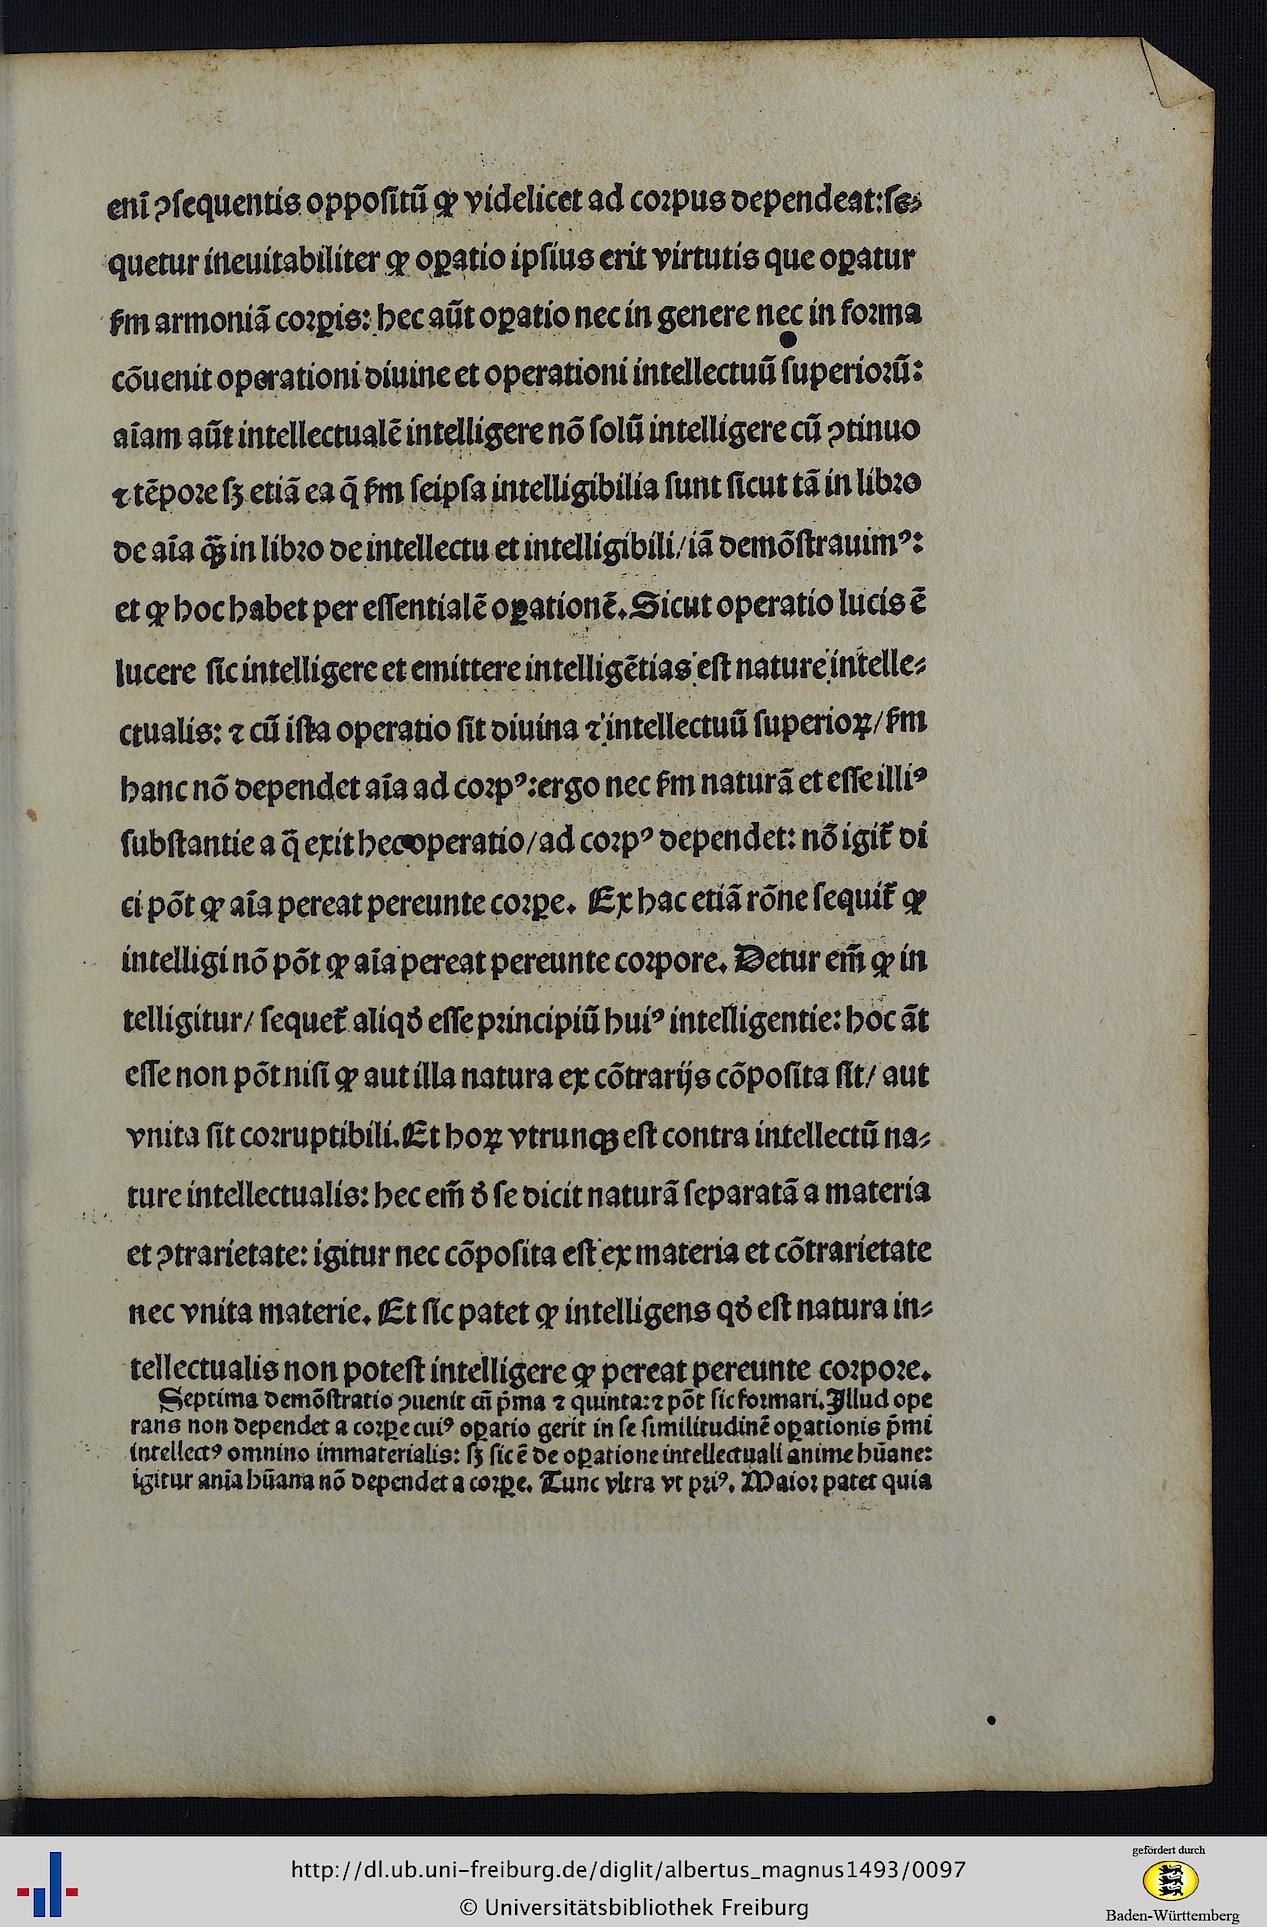 enī ꝯſequentis oppoſitū ꝙ videlicet ad coꝛpus dependeat:ſe⸗
quetur ineuitabiliter ꝙ oꝑatio ipſius erit virtutis que oꝑatur
ẜm armoniā coꝛꝑis: hec aūt oꝑatio nec in genere nec in foꝛma
cōuenit operationi diuine et operationi intellectuū ſuperioꝛū:
aīam aūt intellectualē intelligere nō ſolū intelligere cū ꝯtinuo
⁊ tēpoꝛe ſꝫ etiā ea q̄ ẜm ſeipſa intelligibilia ſunt ſicut tā in libꝛo
de aīa qꝫ̄ in libꝛo de intellectu et intelligibili/iā demōſtrauimꝰ:
et ꝙ hoc habet per eſſentialē oꝑationē. Sicut operatio lucis ē
lucere ſic intelligere et emittere intelligētias eſt nature intelle⸗
ctualis: ⁊ cū iſta operatio ſit diuina ⁊ intellectuū ſuperioꝝ/ẜm
hanc nō dependet aīa ad coꝛpꝰ:ergo nec ẜm naturā et eſſe illiꝰ
ſubſtantie a q̄ exit hec operatio/ad coꝛpꝰ dependet: nō igit̃ di
ci pōt ꝙ aīa pereat pereunte coꝛꝑe. Ex hac etiā rōne ſequit̃ ꝙ
intelligi nō pōt ꝙ aīa pereat pereunte coꝛpoꝛe. Detur em̄ ꝙ in
telligitur/ ſequet̃ aliqđ eſſe pꝛincipiū huiꝰ intelligentie: hoc āt
eſſe non pōt niſi ꝙ aut illa natura ex cōtrarijs cōpoſita ſit/ aut
vnita ſit coꝛruptibili. Et hoꝝ vtrunqꝫ eſt contra intellectū na⸗
ture intellectualis: hec em̄ đ ſe dicit naturā ſeparatā a materia
et ꝯtrarietate: igitur nec cōpoſita eſt ex materia et cōtrarietate
nec vnita materie. Et ſic patet ꝙ intelligens qđ eſt natura in⸗
tellectualis non poteſt intelligere ꝙ pereat pereunte coꝛpoꝛe.
Septima demōſtratio ꝯuenit cū p̄ma ⁊ quinta: ⁊ pōt ſic foꝛmari. Illud ope
rans non dependet a coꝛꝑe cuiꝰ oꝑatio gerit in ſe ſimilitudinē oꝑationis p̄mi
intellectꝰ omnino immaterialis: ſꝫ ſic ē de oꝑatione intellectuali anime hūane:
igitur anīa hūana nō dependet a coꝛꝑe. Tunc vltra vt pꝛiꝰ. Maioꝛ patet quia
http://dl.ub.uni-freiburg.de/diglit/albertus_magnus1493/0097
© Universitätsbibliothek Freiburg
gefördert durch
Baden-Württemberg